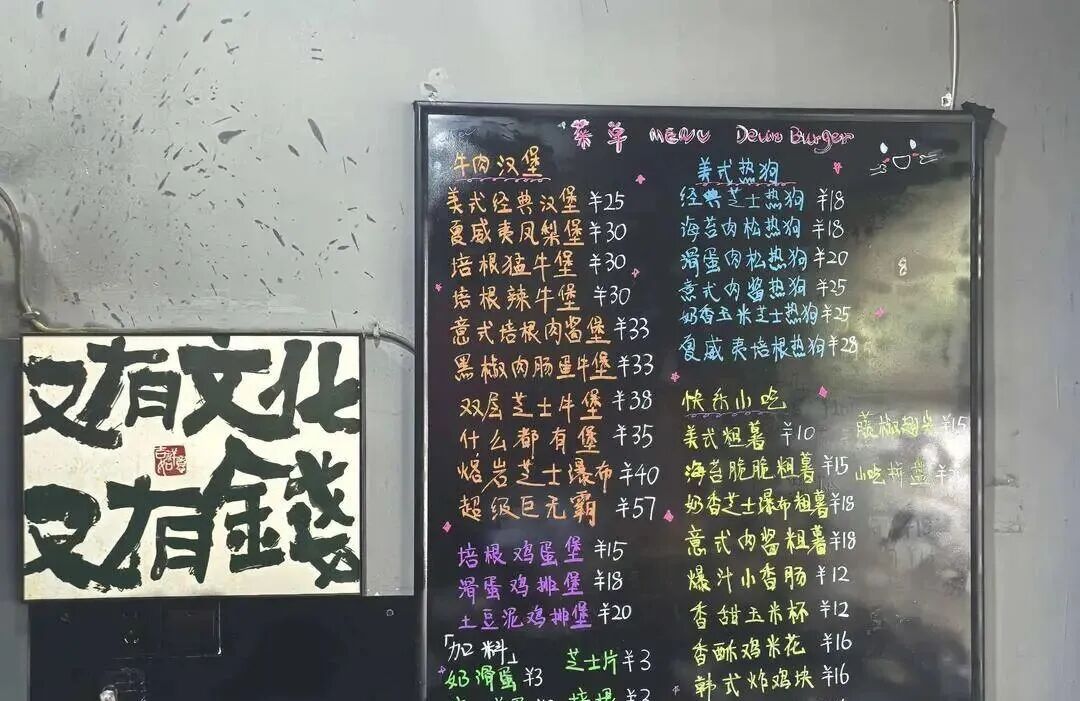 菜单 MENU Devin Burger
牛肉汉堡
美式经典汉堡 ¥25
夏威夷凤梨堡 ¥30
培根猛牛堡 ¥30
培根辣牛堡 ¥30
意式培根肉酱堡 ¥33
黑椒肉肠蛋牛堡 ¥33
双层芝士牛堡 ¥38
什么都有堡 ¥35
熔岩芝士瀑布 ¥40
超级巨无霸 ¥57
培根鸡蛋堡 ¥15
滑蛋鸡排堡 ¥18
土豆泥鸡排堡 ¥20
「加料」
奶滑蛋 ¥3 芝士片 ¥3
美式热狗
经典芝士热狗 ¥18
海苔肉松热狗 ¥18
滑蛋肉松热狗 ¥20
意式肉酱热狗 ¥25
奶香玉米芝士热狗 ¥25
夏威夷培根热狗 ¥28
快乐小吃
美式粗薯 ¥10
海苔脆脆粗薯 ¥15
奶香芝士瀑布粗薯 ¥18
意式肉酱粗薯 ¥18
爆汁小香肠 ¥12
香甜玉米杯 ¥12
香酥鸡米花 ¥16
韩式炸鸡块 ¥16
¥15
小吃拼盘
又有文化
又有錢